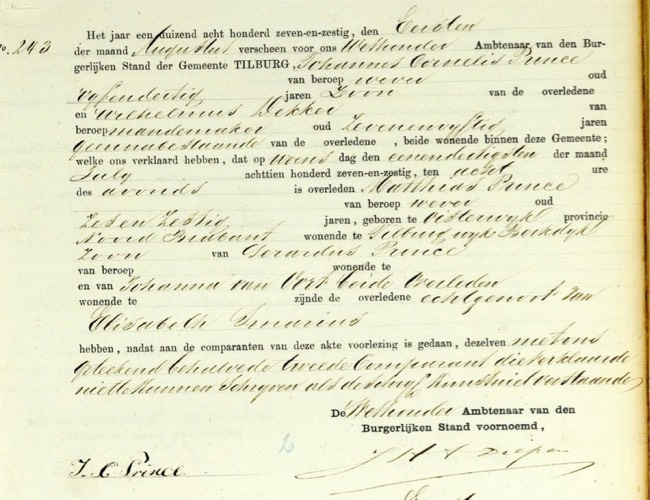 Het jaar een duizend acht honderd zeven-en-zestig, den Eersten
No. 243 der maand Augustus verscheen voor ons Wethouder Ambtenaar van den Bur-
gerlijken Stand der Gemeente TILBURG, Johannes Cornelis Prince
van beroep wever oud
Vyfendertig jaren Zoon van de overledene
en Wilhelmus Dekker van
beroep mandemaker oud Zevenenvyftig jaren
geene nabestaande van de overledene , beide wonende binnen deze Gemeente;
welke ons verklaard hebben, dat op Woens dag den eenendertigsten der maand
July achttien honderd zeven-en-zestig, ten acht ure
des avonds is overleden Matthias Prince
van beroep wever oud
Zes en Zestig jaren, geboren te Oisterwyk provincie
Noord Braband wonende te Tilburg wyk Berkdyk
Zoon van Gerardus Prince
van beroep wonende te
en van Johanna van Oort beide Overleden
wonende te zijnde de overledene echtgenoot van
Elisabeth Smarius
hebben, nadat aan de comparanten van deze akte voorlezing is gedaan, dezelven met ons
geteekend behalve de tweede Comparant die verklaarde
niet te kunnen Schryven als de schryf kunst niet verstaande
De Wethouder Ambtenaar van den
Burgerlijken Stand voornoemd,
J. C. Prince